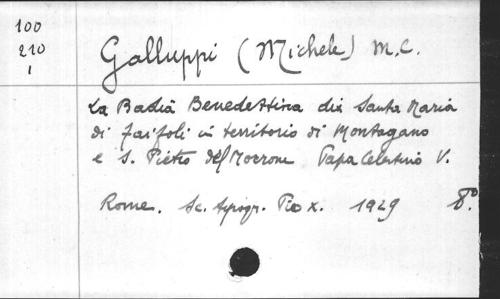 100
210
1
Galluppi (Michele) M.C.
La Badia Benedettina di Santa Maria
di Faifoli in territorio di Montagano
e S. Pietro del Morrone Papa Celestino V.
Rome. Sc. tipogr. Pio X. 1929 8º